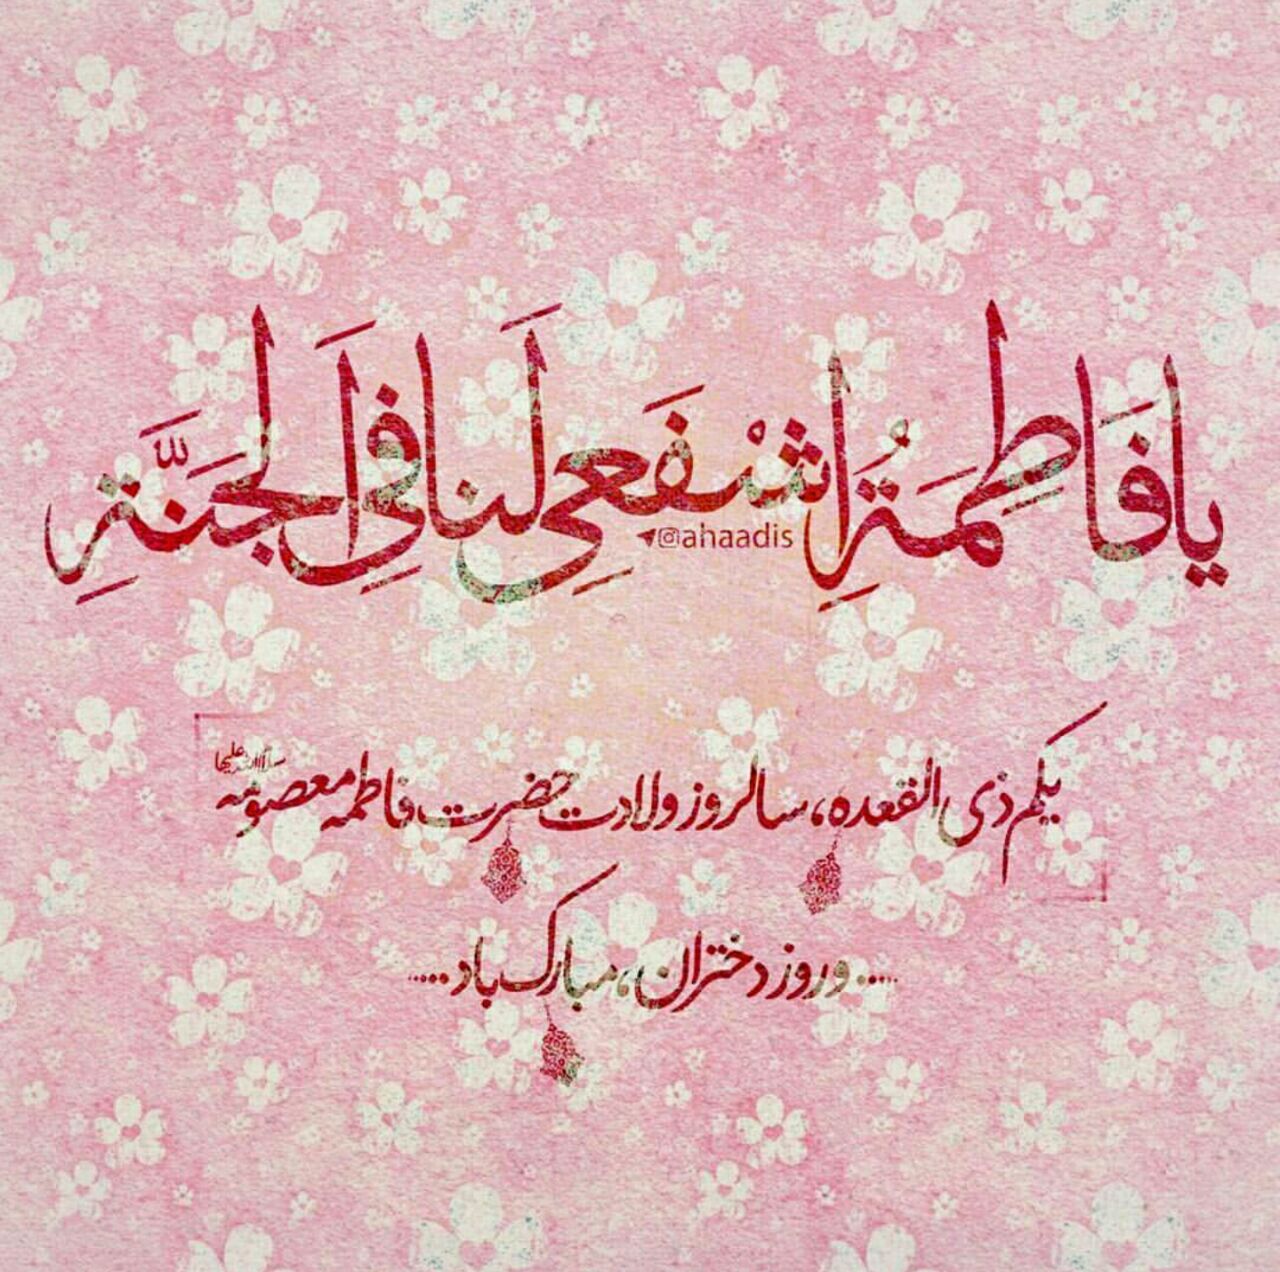 يا فَاطِمَةُ اِشْفَعِي لَنا فِي الجَنَّةِ
@ahaadis
یکم ذی القعده، سالروز ولادت حضرت فاطمه معصومه سلام الله علیها
..... و روز دختران، مبارک باد .....